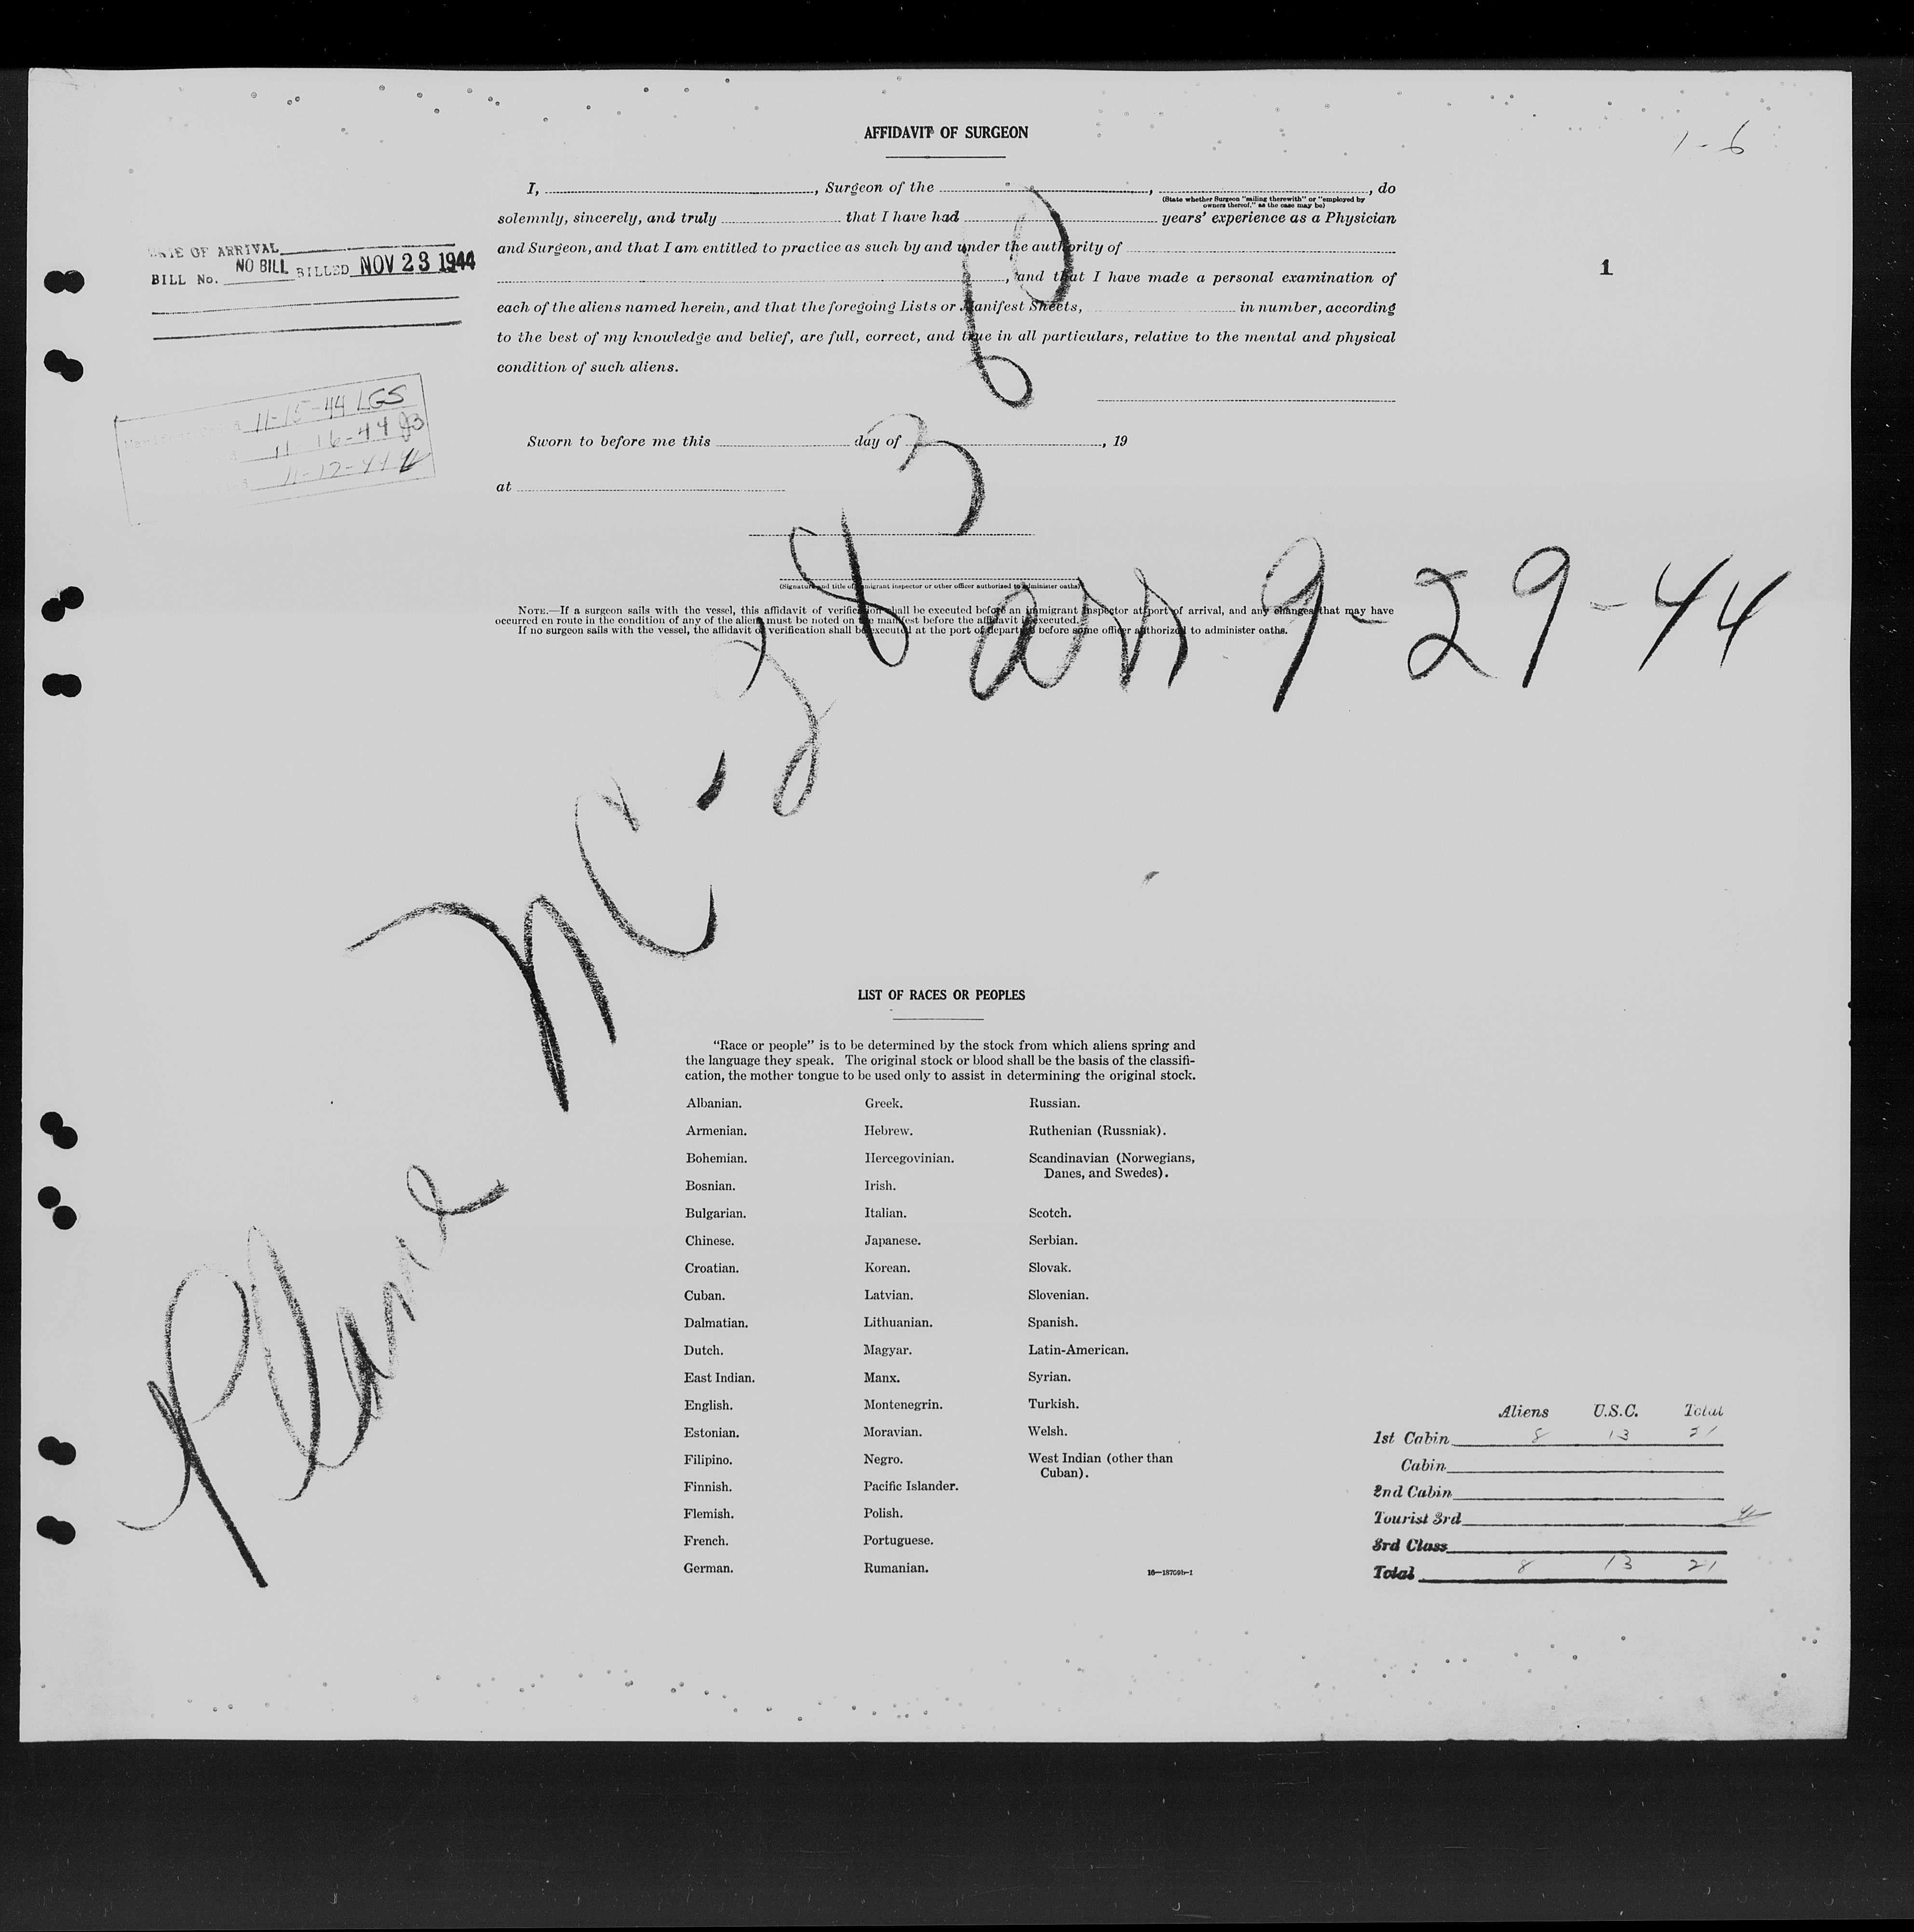 AFFIDAVIT OF SURGEON
1-6
I, , Surgeon of the , , do
(State whether Surgeon "sailing therewith" or "employed by
owners thereof," as the case may be)
solemnly, sincerely, and truly that I have had years' experience as a Physician
and Surgeon, and that I am entitled to practice as such by and under the authority of
, and that I have made a personal examination of
each of the aliens named herein, and that the foregoing Lists or Manifest Sheets, in number, according
to the best of my knowledge and belief, are full, correct, and true in all particulars, relative to the mental and physical
condition of such aliens.
DATE OF ARRIVAL
BILL No. NO BILL BILLED NOV 23 1944
1
11-15-44 LGS
11-16-44
11-17-44
Sworn to before me this day of , 19
at
(Signature and title of immigrant inspector or other officer authorized to administer oaths)
NOTE.—If a surgeon sails with the vessel, this affidavit of verification shall be executed before an immigrant inspector at port of arrival, and any changes that may have
occurred en route in the condition of any of the aliens must be noted on the manifest before the affidavit is executed.
If no surgeon sails with the vessel, the affidavit of verification shall be executed at the port of departure before some officer authorized to administer oaths.
Plane NC-
arr 9-29-44
LIST OF RACES OR PEOPLES
"Race or people" is to be determined by the stock from which aliens spring and
the language they speak. The original stock or blood shall be the basis of the classifi-
cation, the mother tongue to be used only to assist in determining the original stock.
Albanian.
Armenian.
Bohemian.
Bosnian.
Bulgarian.
Chinese.
Croatian.
Cuban.
Dalmatian.
Dutch.
East Indian.
English.
Estonian.
Filipino.
Finnish.
Flemish.
French.
German.
Greek.
Hebrew.
Hercegovinian.
Irish.
Italian.
Japanese.
Korean.
Latvian.
Lithuanian.
Magyar.
Manx.
Montenegrin.
Moravian.
Negro.
Pacific Islander.
Polish.
Portuguese.
Rumanian.
Russian.
Ruthenian (Russniak).
Scandinavian (Norwegians,
Danes, and Swedes).
Scotch.
Serbian.
Slovak.
Slovenian.
Spanish.
Latin-American.
Syrian.
Turkish.
Welsh.
West Indian (other than
Cuban).
16—18709b-1
Aliens U.S.C. Total
1st Cabin 8 13 21
Cabin
2nd Cabin
Tourist 3rd
3rd Class
Total 8 13 21